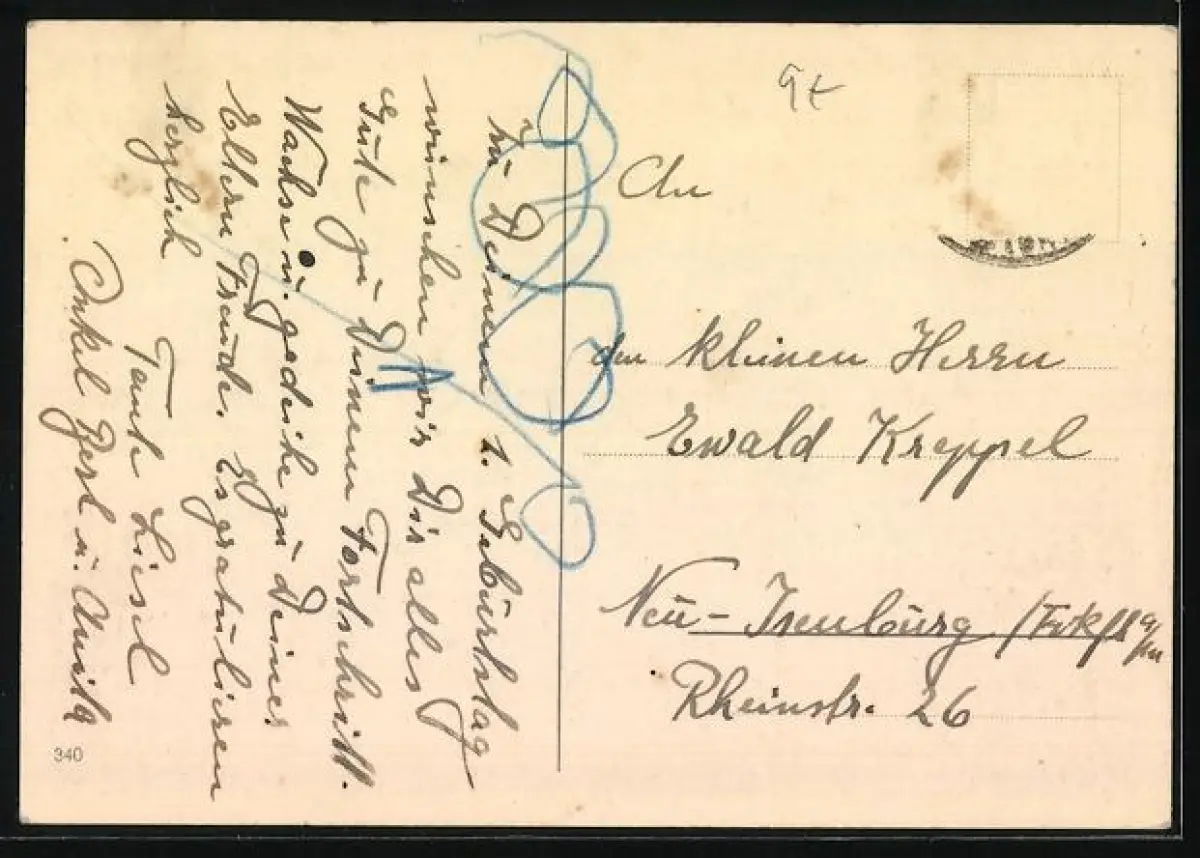 Zu Deinem 1. Geburtstag
wünschen wir Dir alles
Gute zu Deinem Fortschritt.
Wachse u. gedeihe zu Deiner
Eltern Freude. Es gratulieren
herzlich
Tante Liesel
Onkel u. Anita
340
An
den kleinen Herrn
Ewald Kreppel
Neu-Isenburg /Frkft a/M
Rheinstr. 26